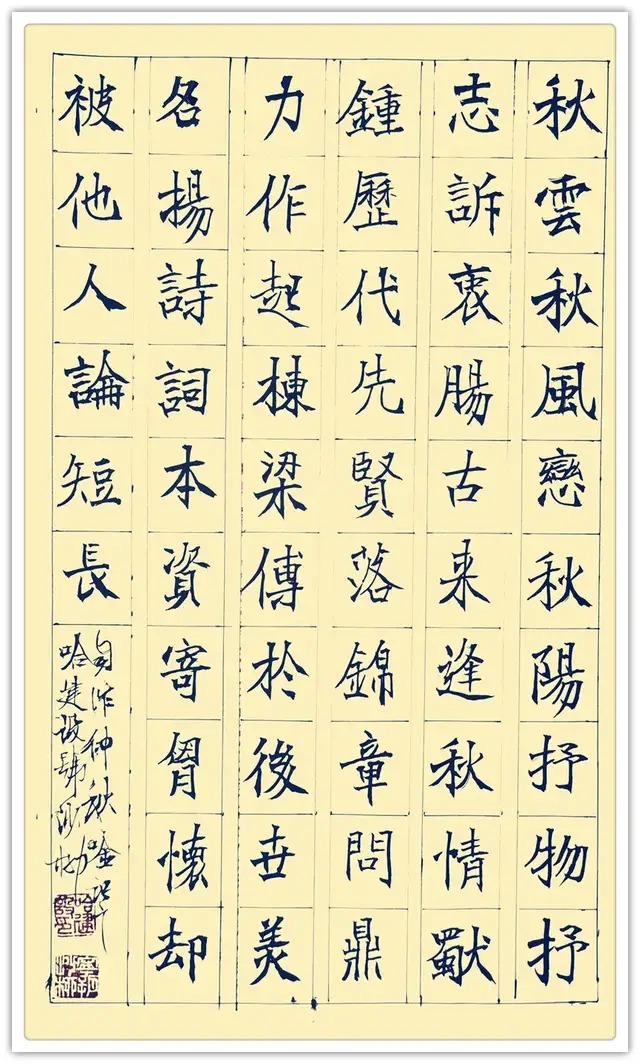 秋雲秋風戀秋陽抒物抒
志訴衷腸古来逢秋情獨
鍾歷代先賢落錦章問鼎
力作起棟梁傳於後世美
名揚詩詞本資寄胷懷却
被他人論短長
自作仲秋吟
哈建設號